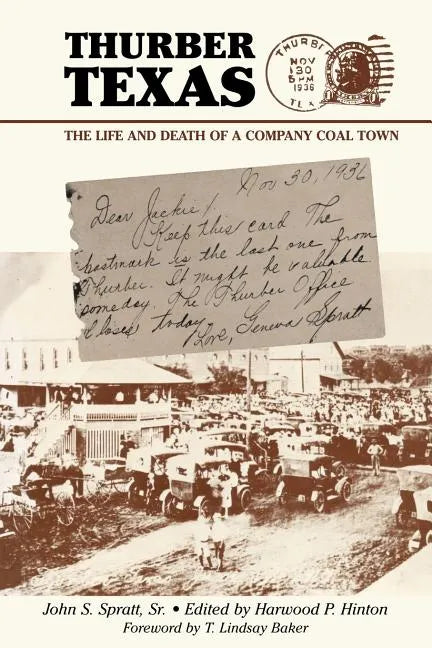 THURBER
TEXAS
THURBER
NOV
30
5 PM
1936
TEX
THE LIFE AND DEATH OF A COMPANY COAL TOWN
Nov 30, 1936
Dear Jackie,
Keep this card. The
postmark is the last one from
Thurber. It might be valuable
someday. The Thurber Office
closes today.
Love, Geneva Spratt
John S. Spratt, Sr. • Edited by Harwood P. Hinton
Foreword by T. Lindsay Baker